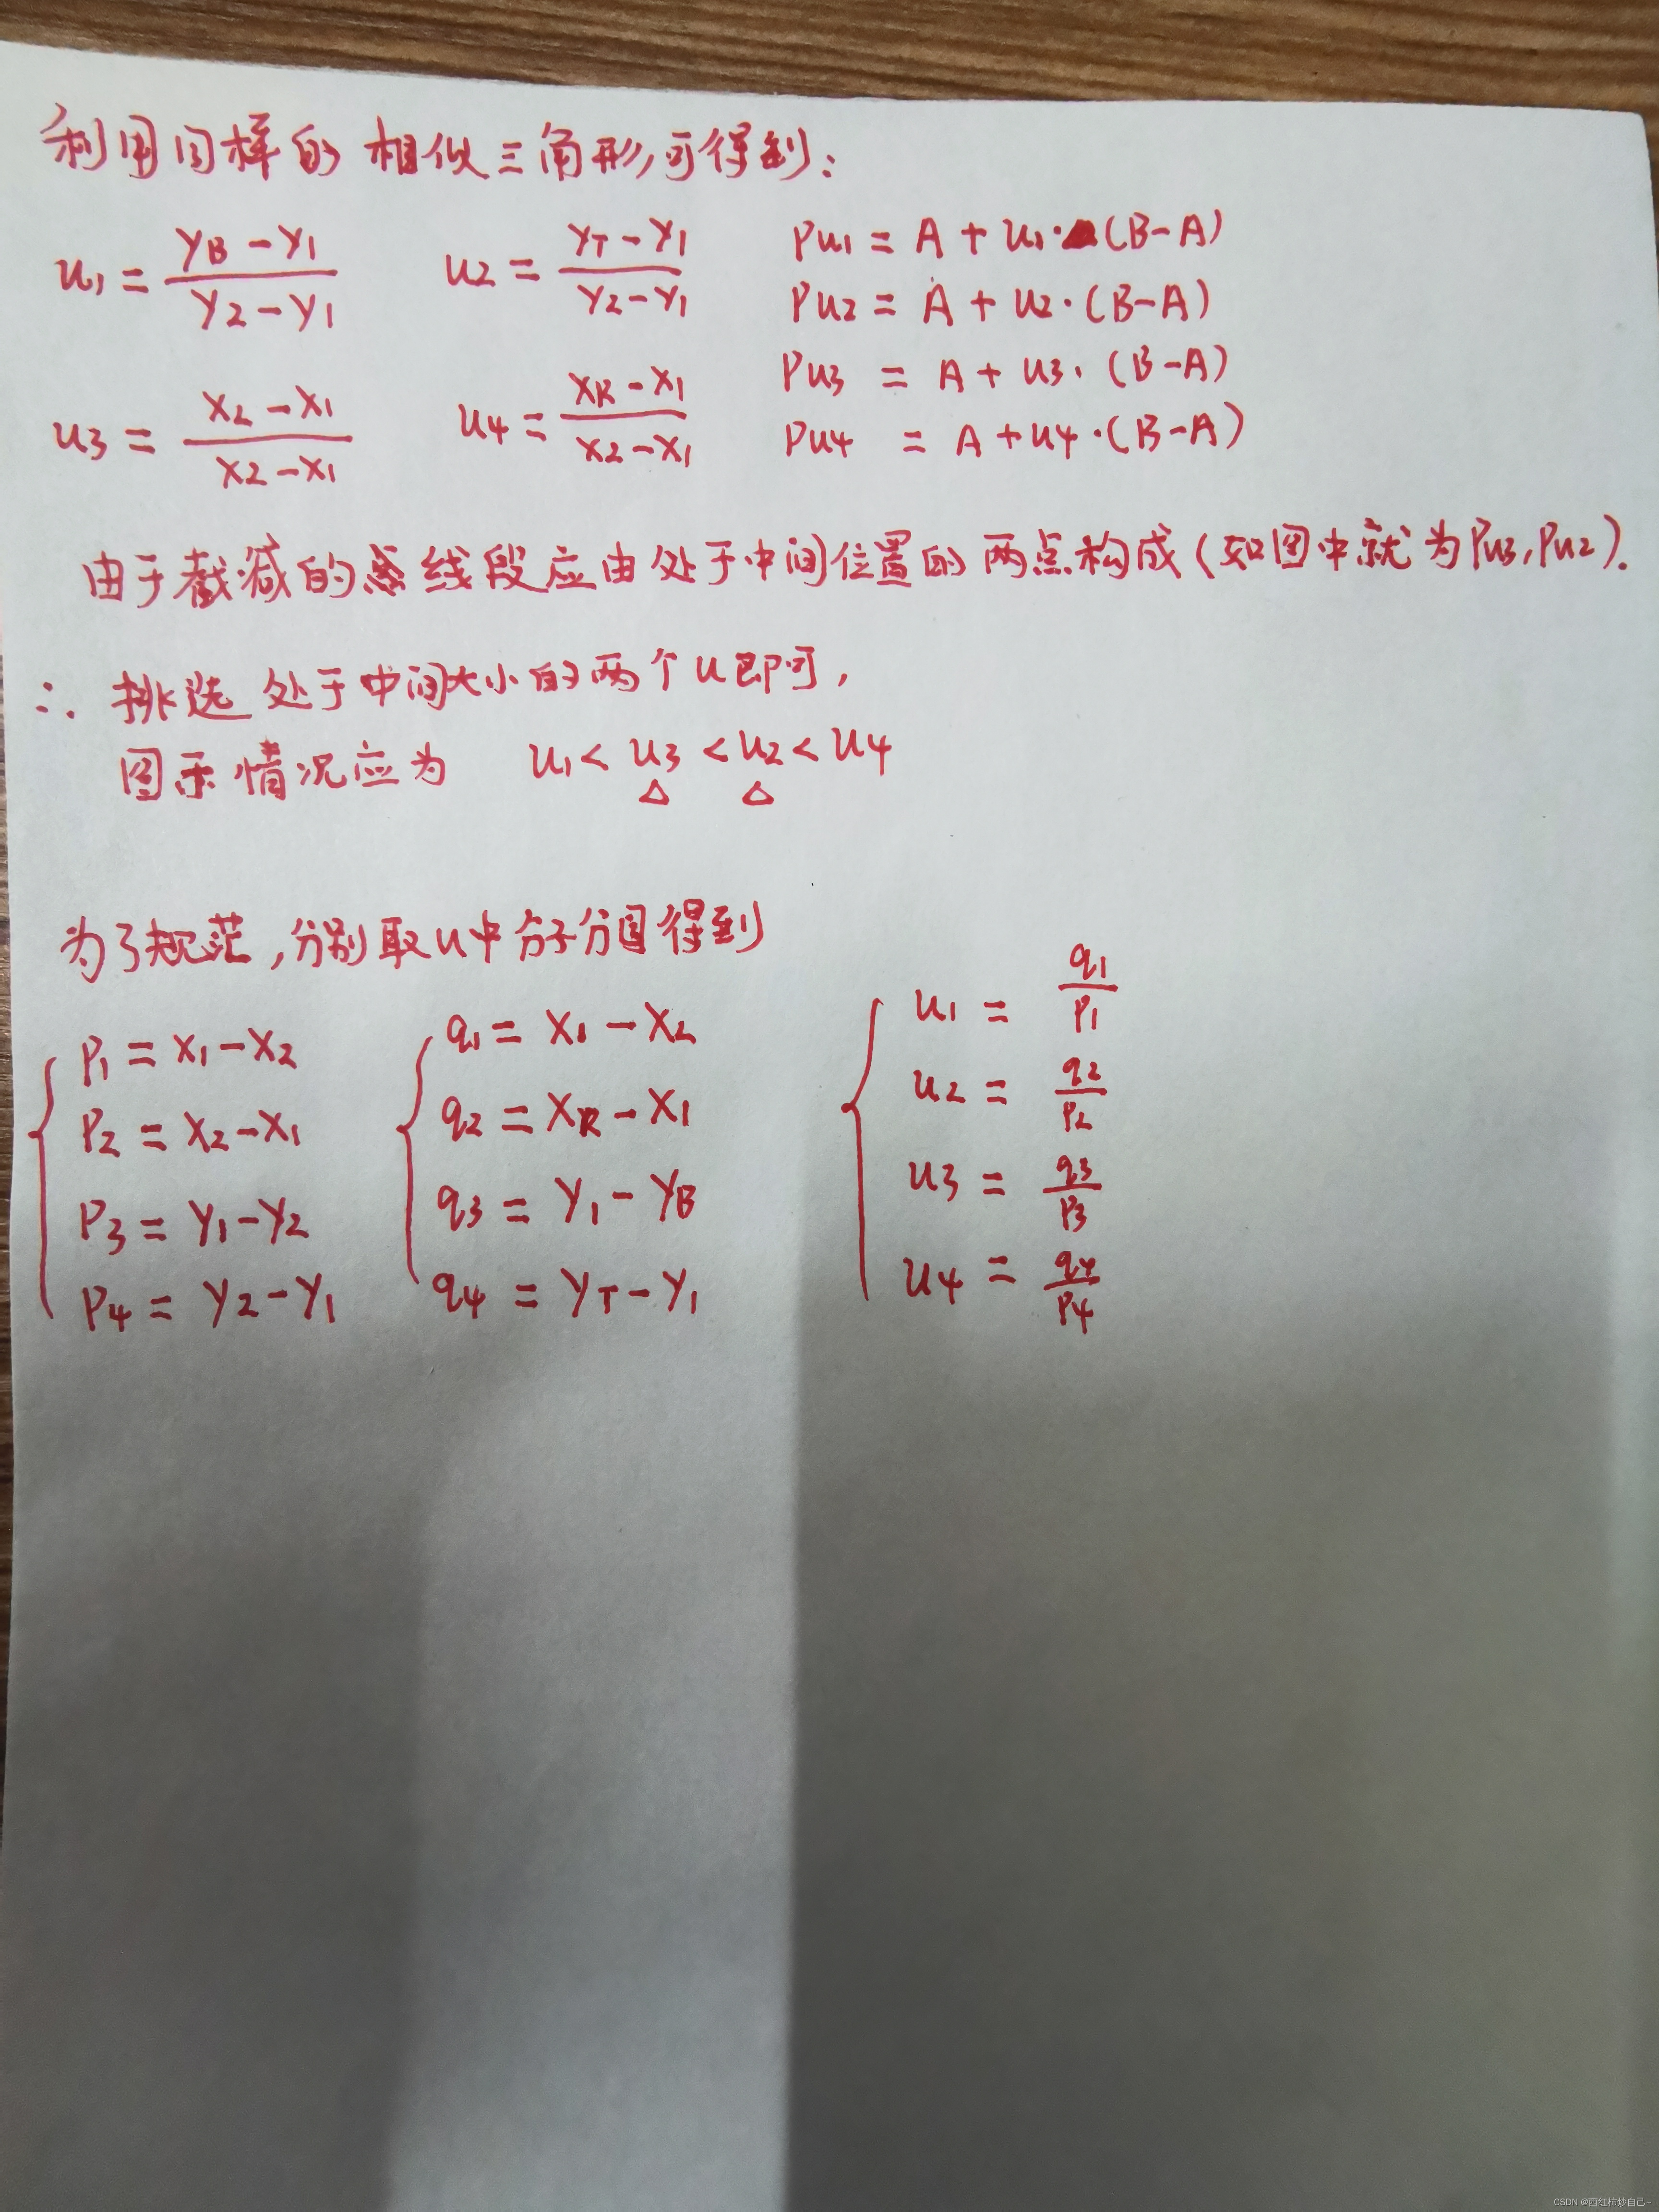 利用同样的相似三角形,可得到:
u1 = (yB - y1)/(y2 - y1)   u2 = (yT - y1)/(y2 - y1)   Pu1 = A + u1·(B-A)
Pu2 = A + u2·(B-A)
u3 = (xL - x1)/(x2 - x1)   u4 = (xR - x1)/(x2 - x1)   Pu3 = A + u3·(B-A)
Pu4 = A + u4·(B-A)
由于截减的线段应由处于中间位置的两点构成(如图中就为Pu3,Pu2).
∴ 挑选处于中间大小的两个u即可,
图示情况应为 u1 < u3 < u2 < u4
△ △
为了规范,分别取u中分子分母得到
p1 = x1 - x2   q1 = x1 - xL   u1 = q1/p1
p2 = x2 - x1   q2 = xR - x1   u2 = q2/p2
p3 = y1 - y2   q3 = y1 - yB   u3 = q3/p3
p4 = y2 - y1   q4 = yT - y1   u4 = q4/p4
CSDN @西红柿炒自己~